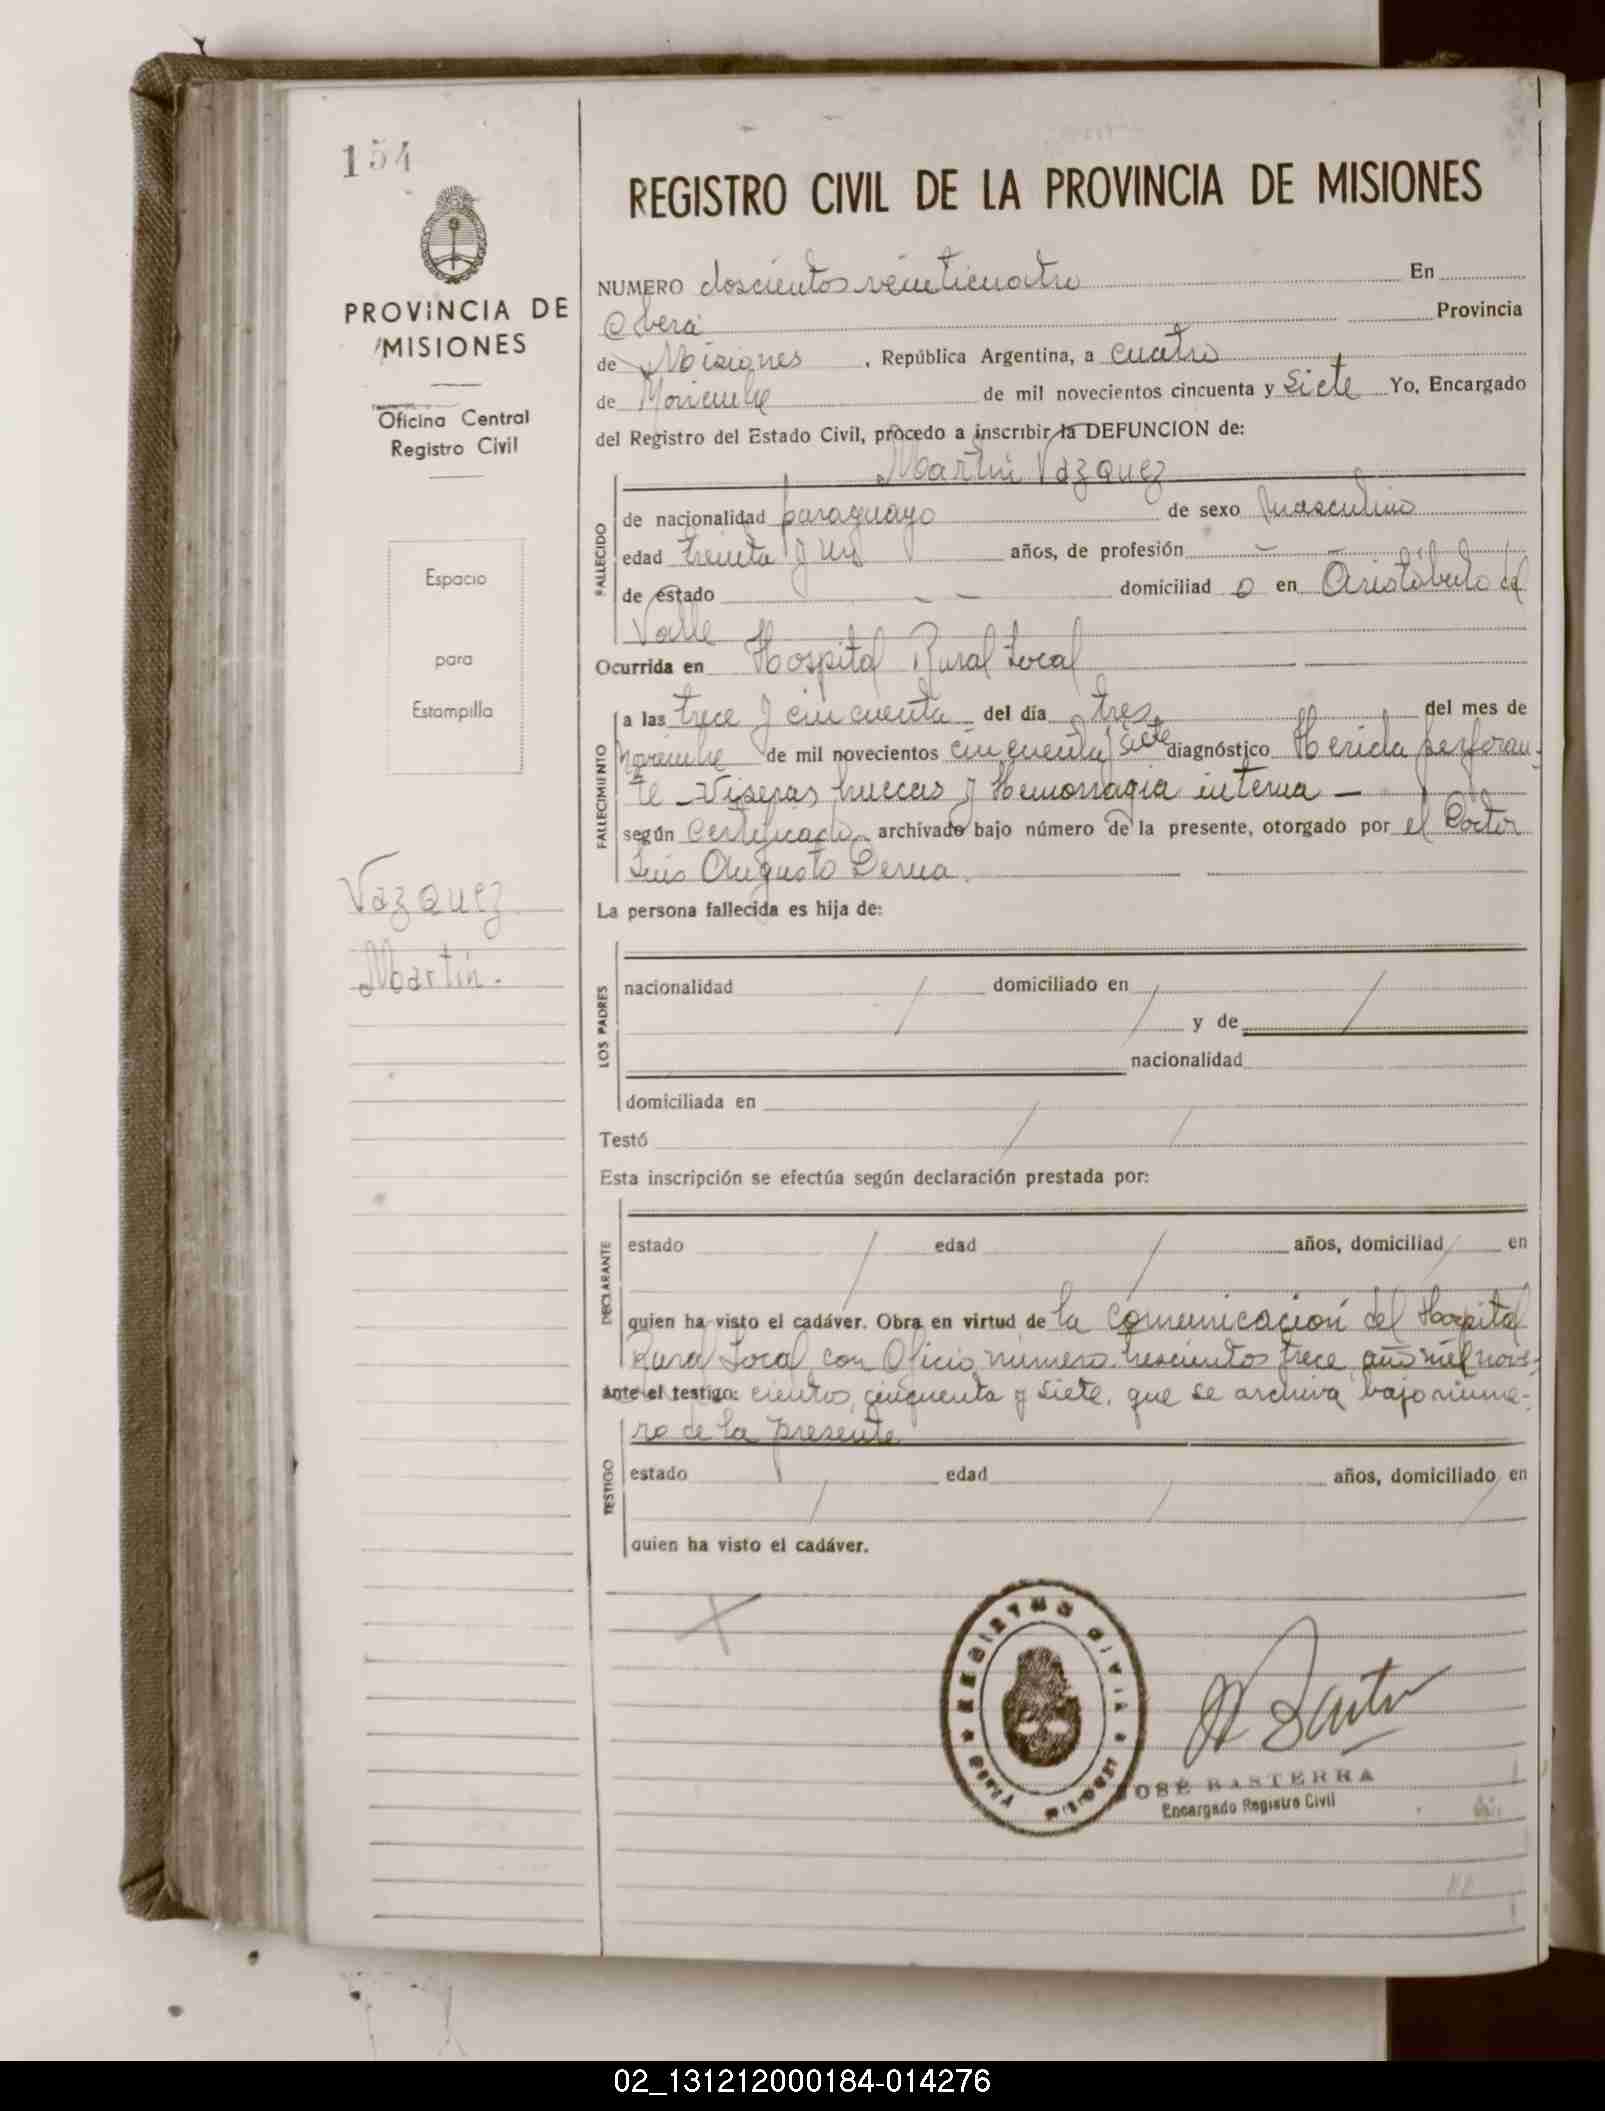 154
PROVINCIA DE
MISIONES
Oficina Central
Registro Civil
Espacio
para
Estampilla
Vazquez
Martin.
REGISTRO CIVIL DE LA PROVINCIA DE MISIONES
NUMERO doscientos veinticuatro En
Oberá Provincia
de Misiones , República Argentina, a cuatro
de Noviembre de mil novecientos cincuenta y siete Yo, Encargado
del Registro del Estado Civil, procedo a inscribir la DEFUNCION de:
Martin Vazquez
FALLECIDO
de nacionalidad paraguayo de sexo masculino
edad treinta y un años, de profesión -
de estado - - domiciliad o en Aristóbulo del
Valle
Ocurrida en Hospital Rural Local
FALLECIMIENTO
a las trece y cincuenta del día tres del mes de
Noviembre de mil novecientos cincuenta y siete diagnóstico Herida perforan-
te - Viseras huecas y Hemorragia interna -
según Certificado archivado bajo número de la presente, otorgado por el Doctor
Luis Augusto
La persona fallecida es hija de:
LOS PADRES
nacionalidad domiciliado en
y de
nacionalidad
domiciliada en
Testó
Esta inscripción se efectúa según declaración prestada por:
DECLARANTE
estado edad años, domiciliad en
quien ha visto el cadáver. Obra en virtud de la comunicación del Hospital
Rural Local con Oficio número trescientos trece año mil nove-
ante el testigo: cientos cincuenta y siete, que se archiva bajo núme-
ro de la presente
TESTIGO
estado edad años, domiciliado en
quien ha visto el cadáver.
REGISTRO CIVIL
OBERA MISIONES
JOSÉ BASTERRA
Encargado Registro Civil
02_131212000184-014276